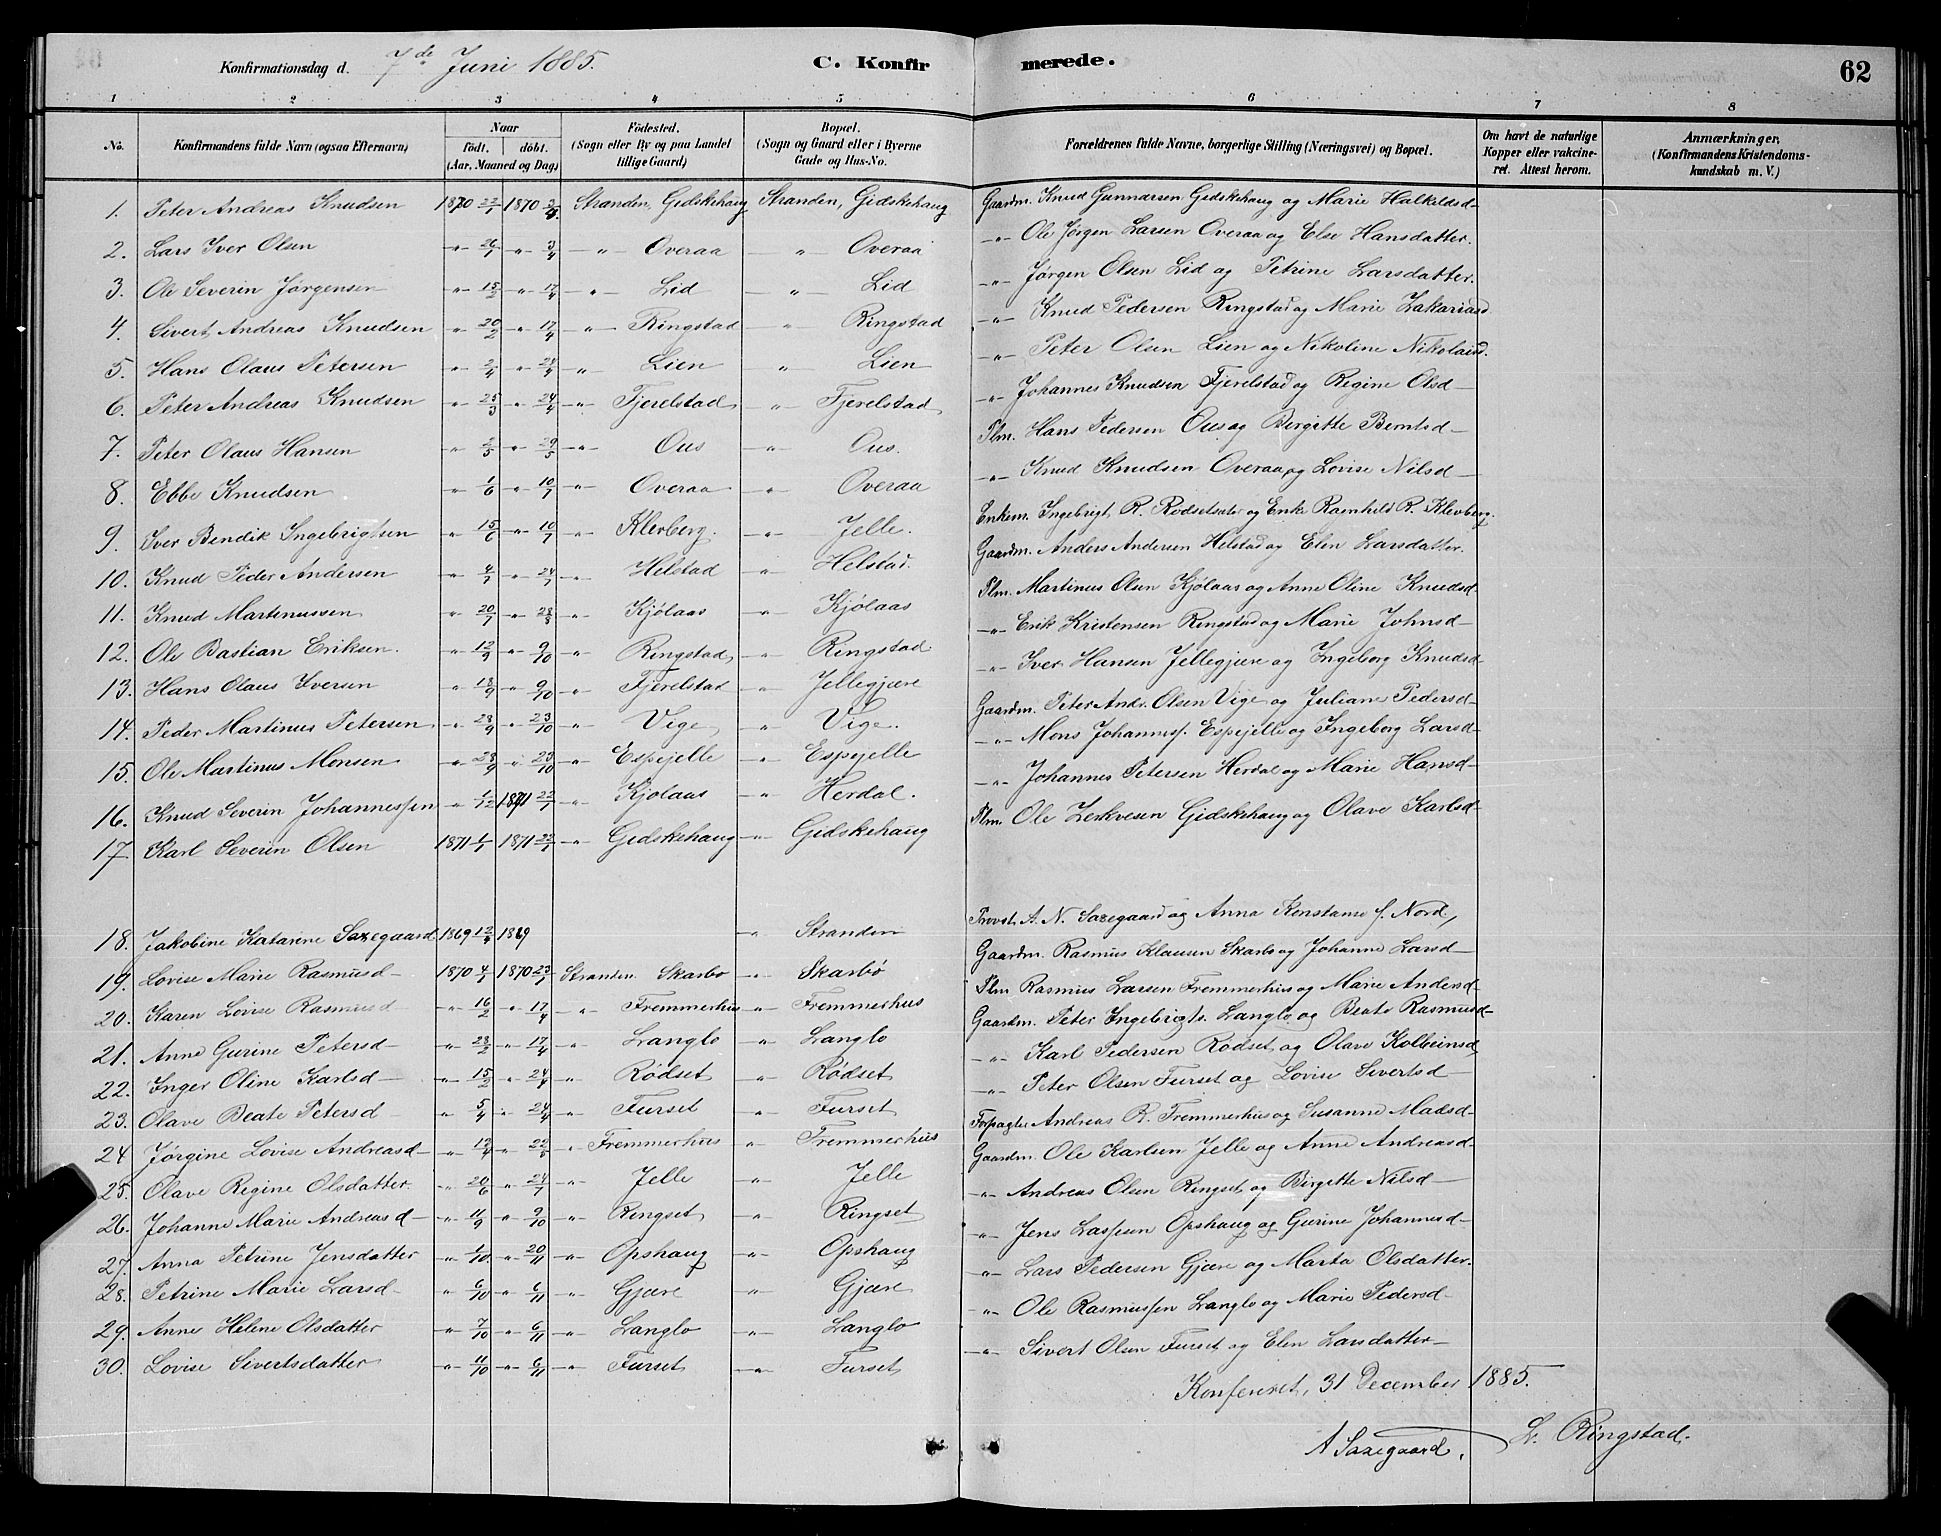 Konfirmationsdag d. 7de Juni 1885. C. Konfirmerede. 62
1 2 3 4 5 6 7 8
No. | Konfirmandens fulde Navn (ogsaa Efternavn) | Naar födt. döbt. (Aar, Maaned og Dag) | Födested. (Sogn eller By og paa Landet tillige Gaard) | Bopæl. (Sogn og Gaard eller i Byerne Gade og Hus-No.) | Forældrenes fulde Navne, borgerlige Stilling (Næringsvei) og Bopæl. | Om havt de naturlige Kopper eller vakcineret. Attest herom. | Anmærkninger, (Konfirmandens Kristendomskundskab m. V.)
1. Peter Andreas Knudsen 1870 22/1 1870 Stranden, Gidskehaug Stranden, Gidskehaug Gaardm. Knud Gunnarsen Gidskehaug og Marie Halkildsd-
2. Lars Iver Olsen " 26/1 " 3/4 -"- Overaa " Overaa -"- Ole Jørgen Larsen Overaa og Else Hansdatter.
3. Ole Severin Jørgensen " 15/2 " 17/4 " Lid " Lid -"- Jørgen Olsen Lid og Petrine Larsdatter.
4. Sivert Andreas Knudsen " 20/2 " 17/4 -"- Ringstad " Ringstad -"- Knud Pedersen Ringstad og Marie Zakariasd
5. Hans Olaus Petersen " 2/4 " 24/4 " Lien " Lien -"- Peter Olsen Lien og Nikoline Nikolaisd.
6. Peter Andreas Knudsen " 25/3 " 24/4 -"- Fjerelstad -"- Fjerelstad -"- Johannes Knudsen Fjerelstad og Regine Olsd-
7. Peter Olaus Hansen " 2/5 -"- 29/5 -"- Ous -"- Ous. Plm. Hans Pedersen Ous og Birgitte Berntsd-
8. Ebbe Knudsen " 1/6 " 10/7 -"- Overaa " Overaa -"- Knud Knudsen Overaa og Lovise Nilsd-
9. Iver Bendik Ingebrigtsen " 15/6 " 10/7 -"- Klevberg. -"- Jelle. Enkem. Ingebrigt R. Rødsetsæter og Enke Ragnhild R. Klevberg.
10. Knud Peder Andersen " 4/7 " 24/7 -"- Helstad -"- Helstad. Gaardm. Anders Andersen Helstad og Elen Larsdatter.
11. Knud Martinussen " 20/7 -"- 28/8 -"- Kjølaas -"- Kjølaas Plm. Martinus Olsen Kjølaas og Anne Oline Knudsd-
12. Ole Bastian Eriksen. " 12/9 -"- 9/10 " Ringstad -"- Ringstad -"- Erik Kristensen Ringstad og Marie Johnsd-
13. Hans Olaus Iversen " 18/9 -"- 9/10 " Fjerelstad " Jellegjære -"- Iver Hansen Jellegjære og Ingeborg Knudsd-
14. Peder Martinus Petersen " 28/9 " 23/10 " Vige " Vige. Gaardm. Peter Andr. Olsen Vige og Juliane Pedersd-
15. Ole Martinus Monsen " 28/9 " 23/10 " Espejelle -"- Espejelle -"- Mons Johanness. Espejelle og Ingeborg Larsd-
16. Knud Severin Johannessen " 1/12 1871 22/1 -"- Kjølaas -"- Herdal. -"- Johannes Petersen Herdal og Marie Hansd-
17 Karl Severin Olsen 1871 1/1 1871 22/1 -"- Gidskehaug -"- Gidskehaug Plm. Ole Gidskehaug og Olave Karlsd-
18. Jakobine Katarine Saxegaard 1869 1869 -"- Stranden Provst A. N. Saxegaard og Anna Konstanse f. Nord,
19. Lovise Marie Rasmusd- 1870 4/1 1870 23/1 Stranden Skarbø -"- Skarbø Gaardm. Rasmus Klausen Skarbo og Johanne Larsd-
20. Karen Lovise Rasmusd " 16/2 -"- 17/4 " Fremmerhus -"- Fremmerhus Plm Rasmus Larsen Fremmerhus og Marie Andersd-
21. Anne Gurine Petersd- " 28/2 " 17/4 " Langlo -"- Langlo Gaardm. Peter Ingebrigts. Langlo og Beate Rasmusd-
22. Inger Oline Karlsd- " 15/2 " 24/4 " Rødset " Rødset -"- Karl Pedersen Rødset og Olave Kolbeinsd,
23. Olave Beate Petersd- " 5/4 " 24/4 " Furset " Furset -"- Peter Olsen Furset og Lovise Sivertsd-
24 Jørgine Lovise Andreasd- " 12/4 " 22/5 " Fremmerhus " Fremmerhus Forpagter Andreas R. Fremmerhus og Susanne Madsd-
25. Olave Regine Olsdatter. " 20/6 " 24/7 " Jelle " Jelle Gaardm. Ole Karlsen Jelle og Anne Andreasd-
26. Johanne Marie Andreasd- " 11/9 " 9/10 " Ringset " Ringset -"- Andreas Olsen Ringset og Birgitte Nilsd-
27. Anna Petrine Jensdatter " 1/10. " 20/11 " Opshaug " Opshaug -"- Jens Lassen Opshaug og Gurine Johannesd-
28. Petrine Marie Larsd- " 6/10 " 6/11 " Gjære " Gjære -"- Lars Pedersen Gjære og Marta Olsdatter.
29. Anne Helene Olsdatter " 7/10 " 6/11 " Langlo -"- Langlo -"- Ole Rasmussen Langlo og Marie Pedersd-
30. Lovise Sivertsdatter " 11/10 -"- 6/11 -"- Furset " Furset -"- Sivert Olsen Furset og Elen Larsdatter-
Konfereret, 31 December 1885.
A Saxegaard. L. Ringstad.